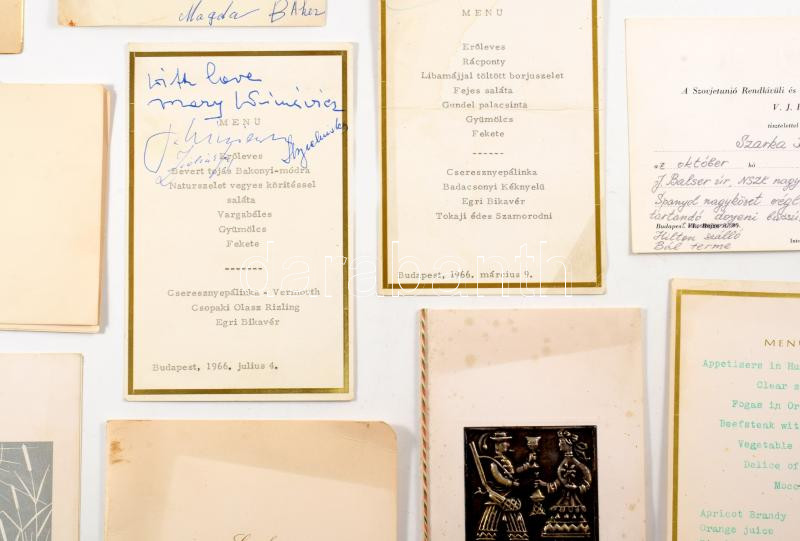 Magda Baker
with love
MENU
Erőleves
Bevert tojás Bakonyi-módra
Naturszelet vegyes körítéssel
saláta
Vargabéles
Gyümölcs
Fekete
Cseresznyepálinka - Vermouth
Csopaki Olasz Rizling
Egri Bikavér
Budapest, 1966. julius 4.
MENU
Erőleves
Rácponty
Libamájjal töltött borjuszelet
Fejes saláta
Gundel palacsinta
Gyümölcs
Fekete
Cseresznyepálinka
Badacsonyi Kéknyelü
Egri Bikavér
Tokaji édes Szamorodni
Budapest, 1966. március 9.
A Szovjetunió Rendkívüli és
V. J.
tisztelettel
Szarka
az október hó
J. Balser úr, NSZK nagy
Spanyol nagykövet
tartandó
Budapest.
Hilton szálló
Bál terme
MENU
Appetisers in Hu
Clear s
Fogas in Or
Beefsteak wit
Vegetable
Delice of
Moc
Apricot Brandy
Orange juice
darabanth